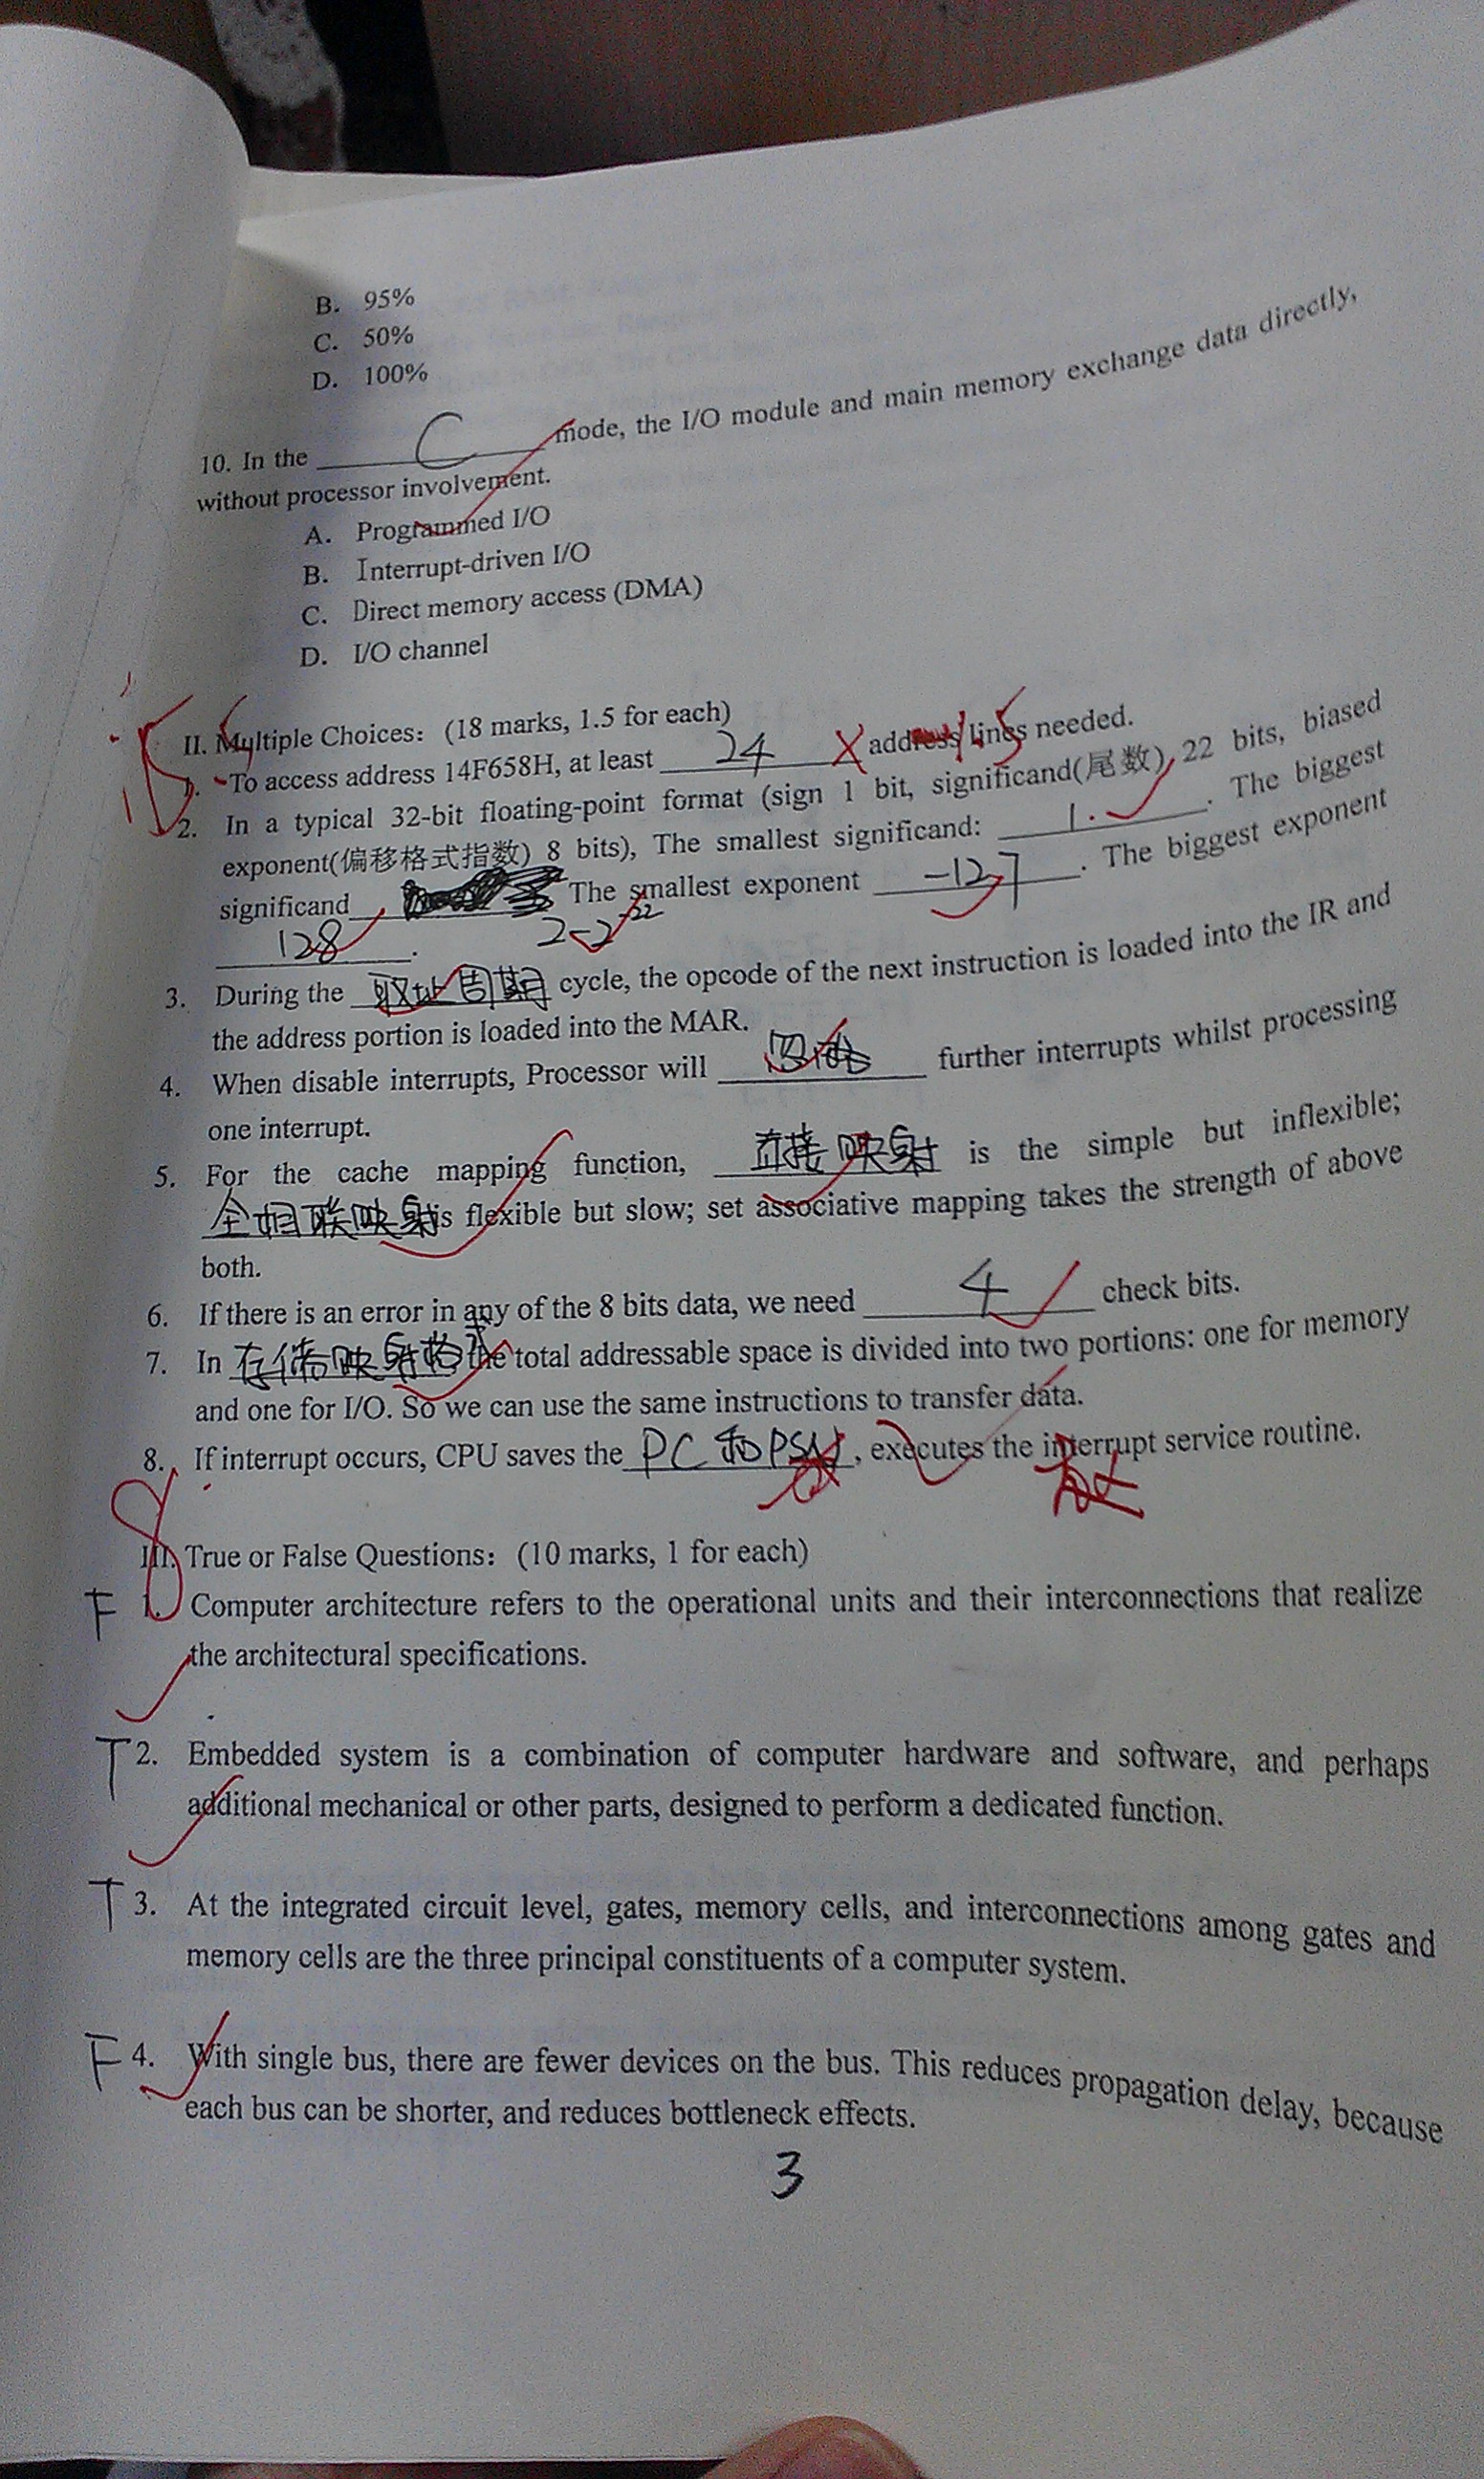 B. 95%
C. 50%
D. 100%
10. In the C mode, the I/O module and main memory exchange data directly,
without processor involvement.
A. Programmed I/O
B. Interrupt-driven I/O
C. Direct memory access (DMA)
D. I/O channel
II. Multiple Choices: (18 marks, 1.5 for each)
1. To access address 14F658H, at least 24 address lines needed.
2. In a typical 32-bit floating-point format (sign 1 bit, significand(尾数), 22 bits, biased
exponent(偏移格式指数) 8 bits), The smallest significand: 1. . The biggest
significand The smallest exponent -127 . The biggest exponent
128 . 2-2^-22
3. During the 取址周期 cycle, the opcode of the next instruction is loaded into the IR and
the address portion is loaded into the MAR.
4. When disable interrupts, Processor will further interrupts whilst processing
one interrupt.
5. For the cache mapping function, 直接映射 is the simple but inflexible;
全相联映射 is flexible but slow; set associative mapping takes the strength of above
both.
6. If there is an error in any of the 8 bits data, we need 4 check bits.
7. In 存储映射 the total addressable space is divided into two portions: one for memory
and one for I/O. So we can use the same instructions to transfer data.
8. If interrupt occurs, CPU saves the PC和PSW, executes the interrupt service routine.
8
III. True or False Questions: (10 marks, 1 for each)
F 1. Computer architecture refers to the operational units and their interconnections that realize
the architectural specifications.
T 2. Embedded system is a combination of computer hardware and software, and perhaps
additional mechanical or other parts, designed to perform a dedicated function.
T 3. At the integrated circuit level, gates, memory cells, and interconnections among gates and
memory cells are the three principal constituents of a computer system.
F 4. With single bus, there are fewer devices on the bus. This reduces propagation delay, because
each bus can be shorter, and reduces bottleneck effects.
3